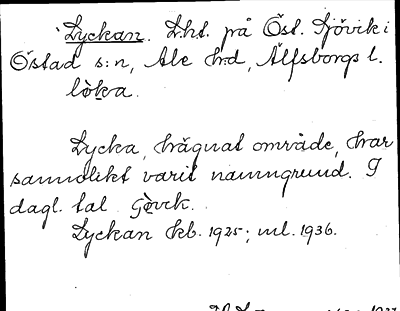 Lyckan. Lht. på Öst. Sjövik i
Östad s:n, Ale h:d, Älfsborgs l.
lø̀ka.
Lycka, hägnat område, har
sannolikt varit namngrund. I
dagl. tal Gø̀vik.
Lyckan kb. 1925; ml. 1936.